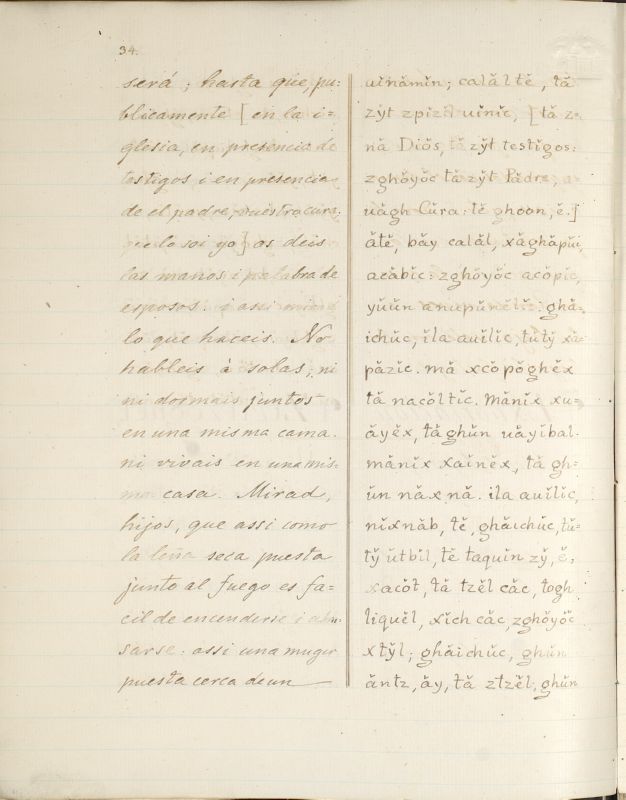 34.
será; hasta que, pu=
blicamente [en la i=
glesia, en presencia de
testigos i en presencia
de el padre, vuestro cura,
que lo soi yo] os deis
las manos i palabra de
esposos. i assi
lo que haceis. No
hableis à solas, ni
ni dormais juntos
en una misma cama.
ni vivais en una mis=
ma casa. Mirad,
hijos, que assi como
la leña seca puesta
junto al fuego es fa=
cil de encenderse i abra
sarse: assi una muger
puesta cerca de un
uĭnămĭn; calăltĕ, tă
zy̆t zpizil uĭnĭc, [tă z=
nă Diŏs, tă zy̆t testĭgos:
zghŏyŏc tă zy̆t Pădre,
uăgh Cŭra: tĕ ghoon, ĕ.]
ătĕ, băy calăl, xăghăpŭi,
acăbĭc: zghŏyŏc acŏpĭc,
yŭŭn anupŭnĕlĭc: ghă=
ichŭc, ĭla auĭlĭc, tŭty̆ xă=
păzĭc. mă xcŏpŏghĕx
tă nacŏltĭc. Mănĭx xu=
ăyĕx, tăghŭn uăyĭbal.
mănĭx xaĭnĕx, tă gh=
ŭn năx nă. ĭla auĭlĭc,
nĭxnăb, tĕ, ghăichŭc, tŭ=
ty̆ ŭtbil, tĕ taquĭn zy̆, ĕ,
xacŏt, tă tzĕl căc, togh
lĭquĕl, xĭch căc, zghŏyŏc
xty̆l; ghăichŭc, ghŭn
ăntz, ăy, tă ztzĕl, ghŭn